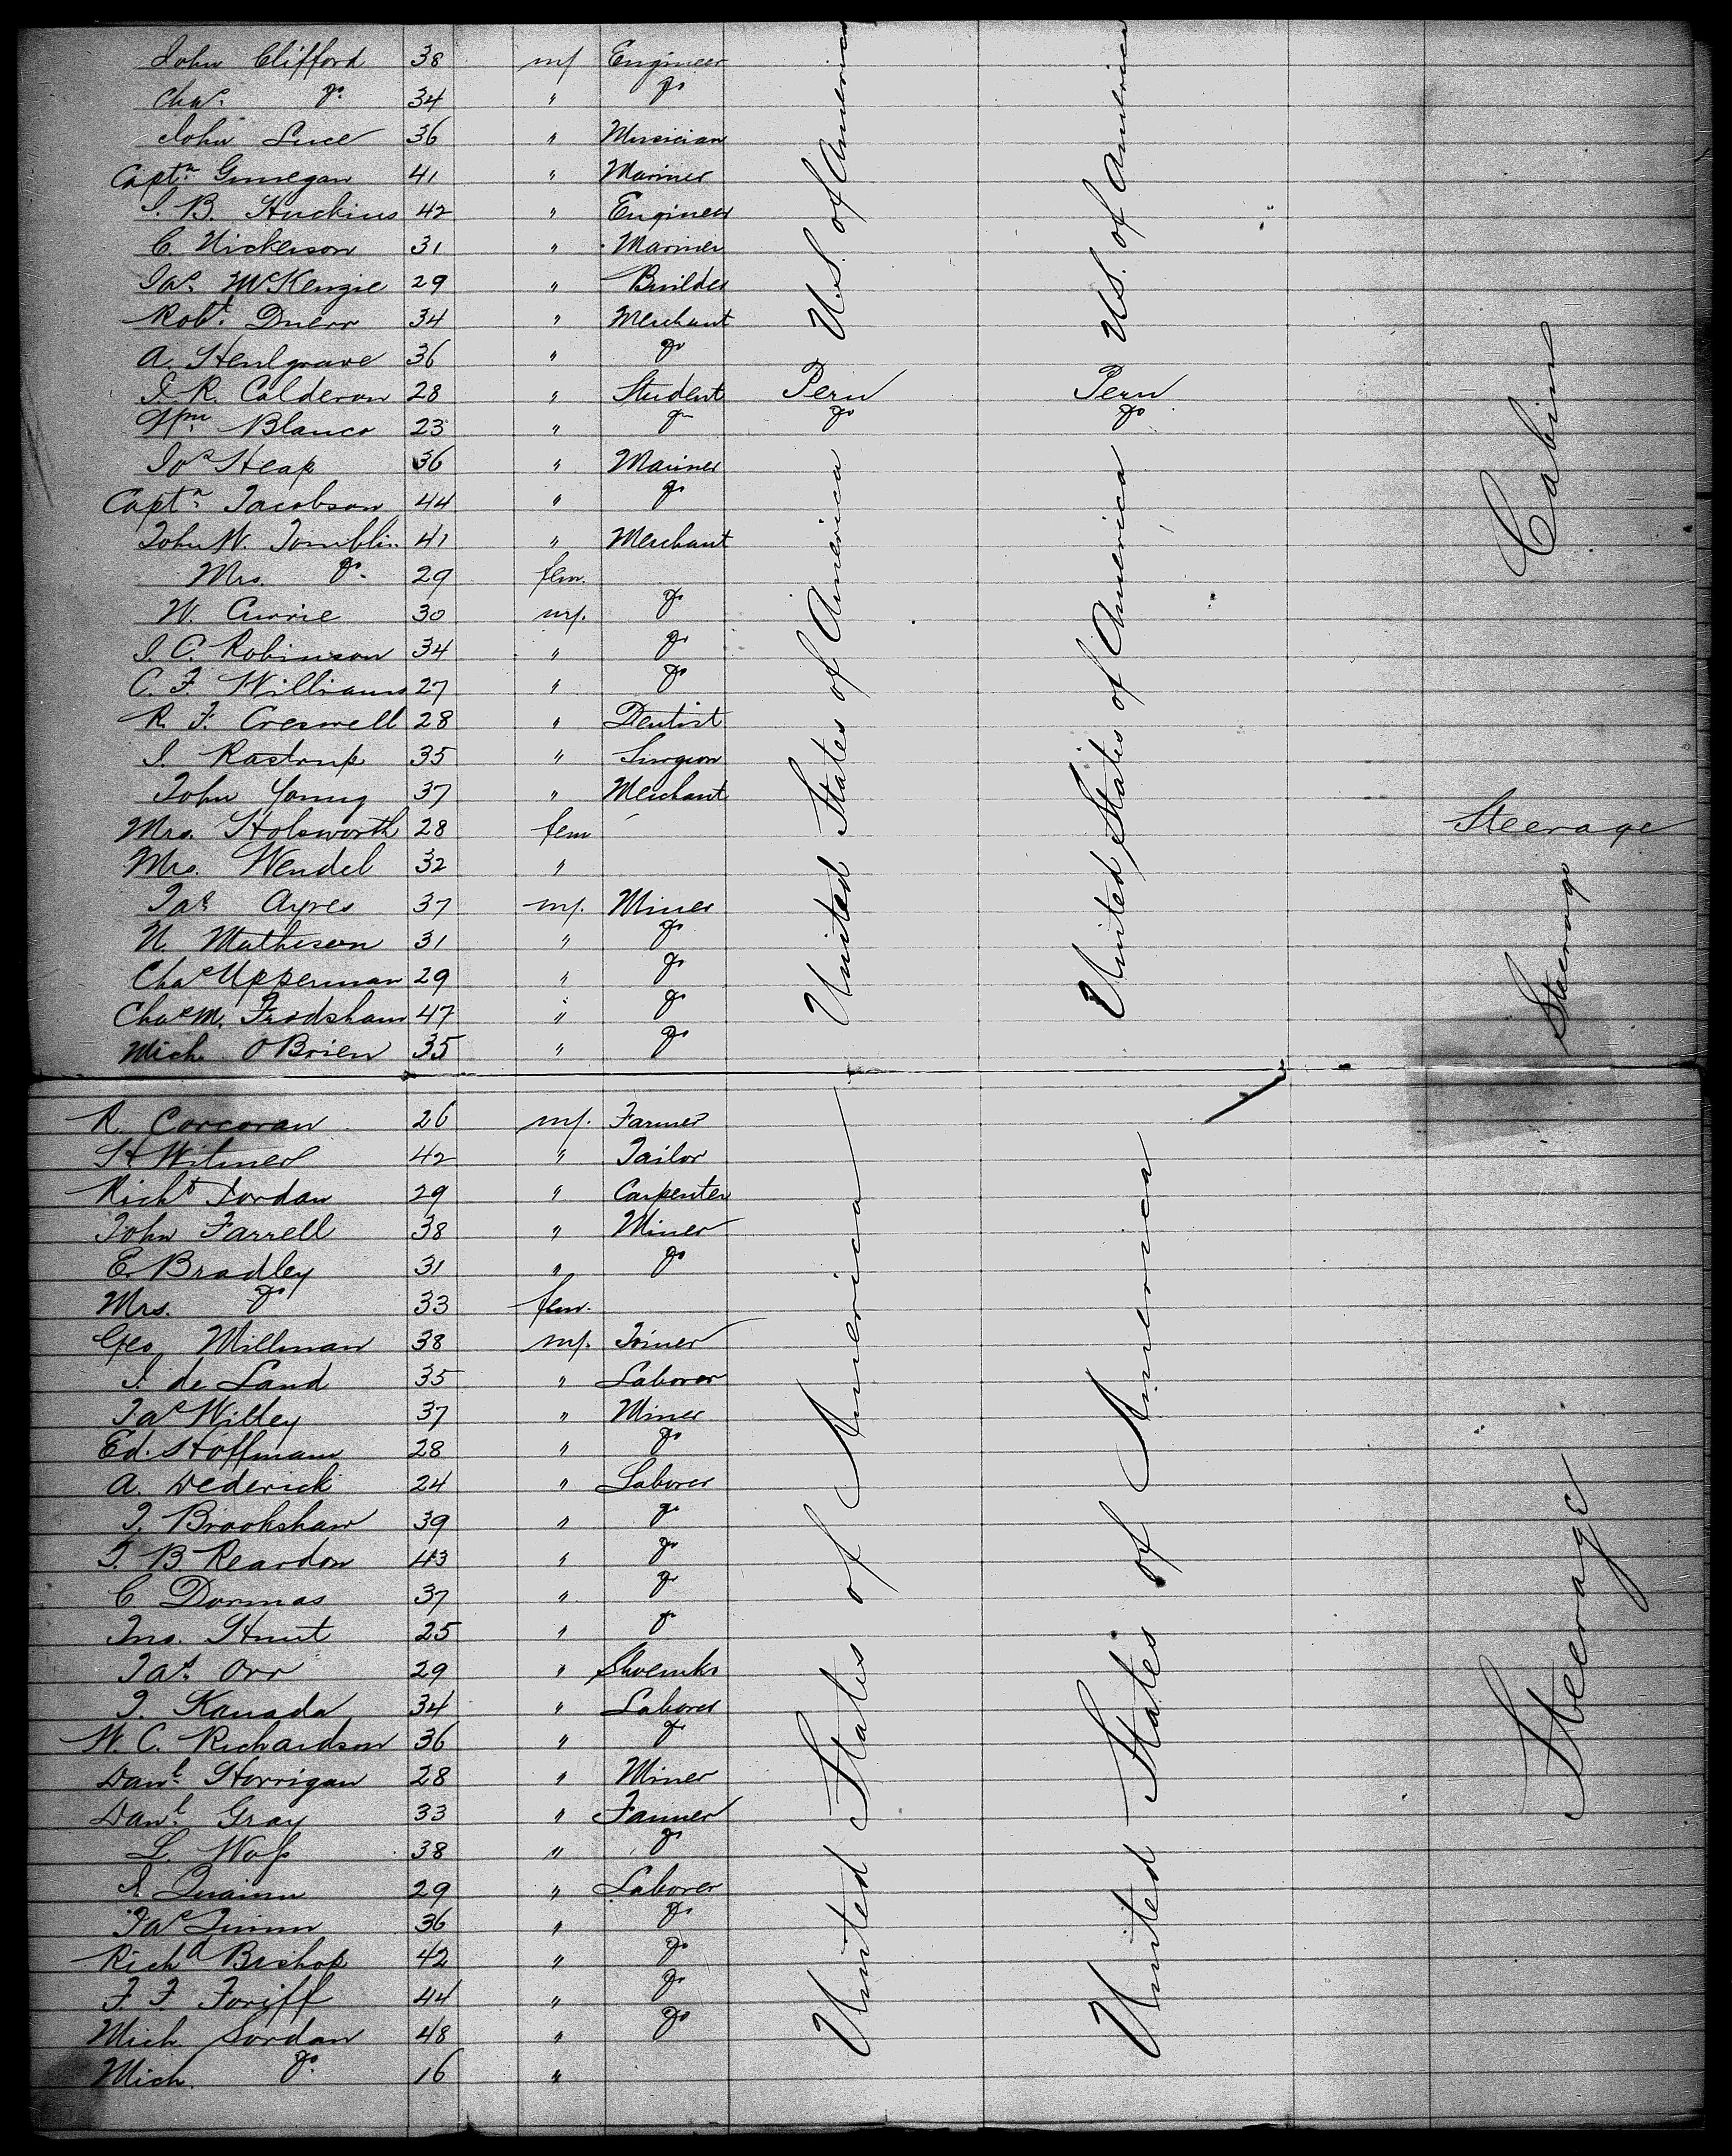 John Clifford 38 m/ Engineer
Chas. do. 34 " do
John Luce 36 " Musician
Captn. Ginnegan 41 " Mariner
I. B. Huckins 42 " Engineer
C. Nickerson 31 " Mariner
Jas. McKenzie 29 " Builder
Robt. Duerr 34 " Merchant
A. Henlgrave 36 " do
I. R. Calderon 28 " Student Peru Peru
Blanco 23 " do do do
Jos Heap 36 " Mariner
Captn. Jacobson 44 " do
John W. Tomblin 41 " Merchant
Mrs. do. 29 fem.
W. Currie 30 m/. do
J. C. Robinson 34 " do
C. F. Williams 27 " do
R. F. Creswell 28 " Dentist
I. Rastrup 35 " Surgeon
John Young 37 " Merchant
Mrs. Holsworth 28 fem Steerage
Mrs. Wendel 32 "
Jas Ayres 37 m/. Miner
N. Matheson 31 " do
Chas Upperman 29 " do
Chas M. Frodsham 47 " do
Mich. O'Brien 35 " do
U.S. of America
U.S. of America
Cabin
United States of America
United States of America
Steerage
R. Corcoran 26 m/. Farmer
H Wilmer 42 " Tailor
Richd Jordan 29 " Carpenter
John Farrell 38 " Miner
E. Bradley 31 " do
Mrs. do 33 fem.
Geo Millman 38 m/. Joiner
I. de Land 35 " Laborer
Jas Willey 37 " Miner
Ed. Hoffman 28 " do
A. Dederick 24 " Laborer
J. Brookshaw 39 " do
J. B Reardon 43 " do
C Dormas 37 " do
Jno. Hunt 25 " do
Jas. Orr 29 " Shoemkr
J. Kanada 34 " Laborer
W. C. Richardson 36 " do
Danl. Horrigan 28 " Miner
Danl. Gray 33 " Farmer
L. Wass 38 " do
Quainn 29 " Laborer
Jas Quinn 36 " do
Richd Bishop 42 " do
F. F. Foriff 44 " do
Mich Jordan 48 " do
Mich. do. 16 "
United States of America
United States of America
Steerage